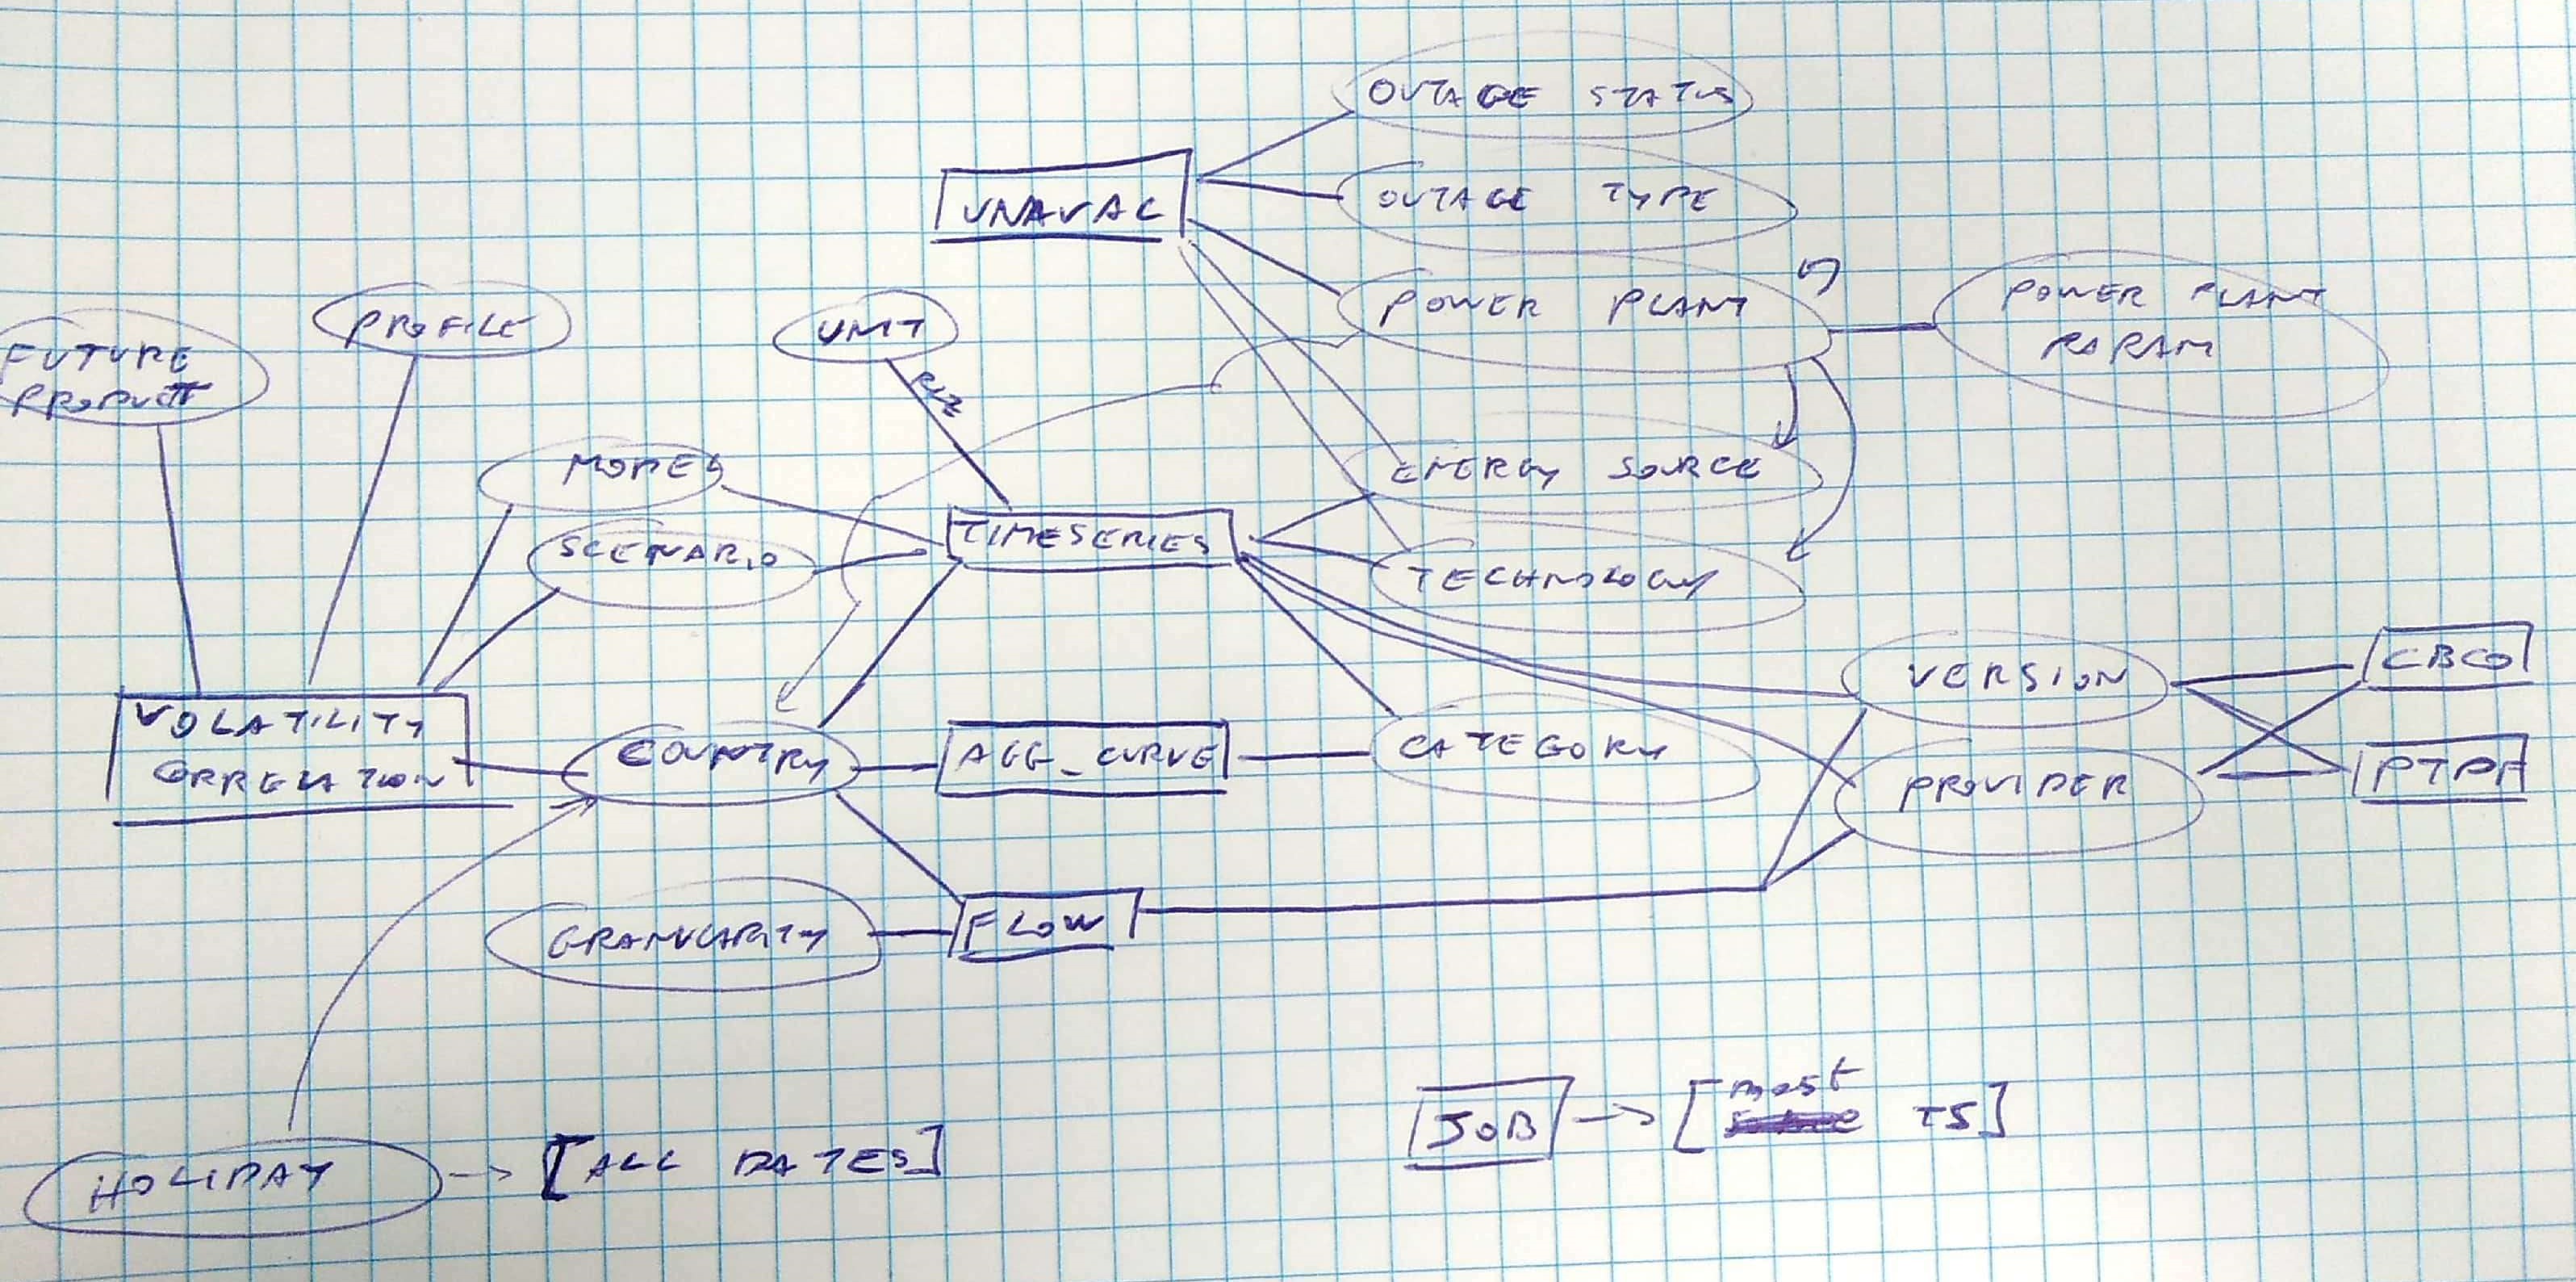 OUTAGE STATUS
UNAVAC
OUTAGE TYPE
POWER PLANT
POWER PLANT
PARAM
PROFILE
UNIT
FUTURE
PRODUCT
MODEL
ENERGY SOURCE
SCENARIO
TIMESERIES
TECHNOLOGY
VERSION
CBCO
VOLATILITY
CORRELATION
COUNTRY
AGG_CURVE
CATEGORY
PROVIDER
PTDF
GRANULARITY
FLOW
most
JOB -> [ TS]
HOLIDAY -> [ALL DATES]